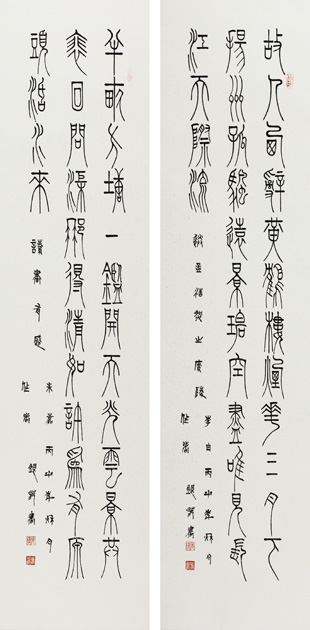 故人西辭黃鶴樓煙花三月下
揚州孤帆遠景碧空盡唯見長
江天際流
送孟浩然之廣陵
李白 丙申年秋月
半畝方塘一鑑開天光雲景共
裴回問渠那得清如許為有原
頭活水來
讀書有感
朱熹 丙申年秋月